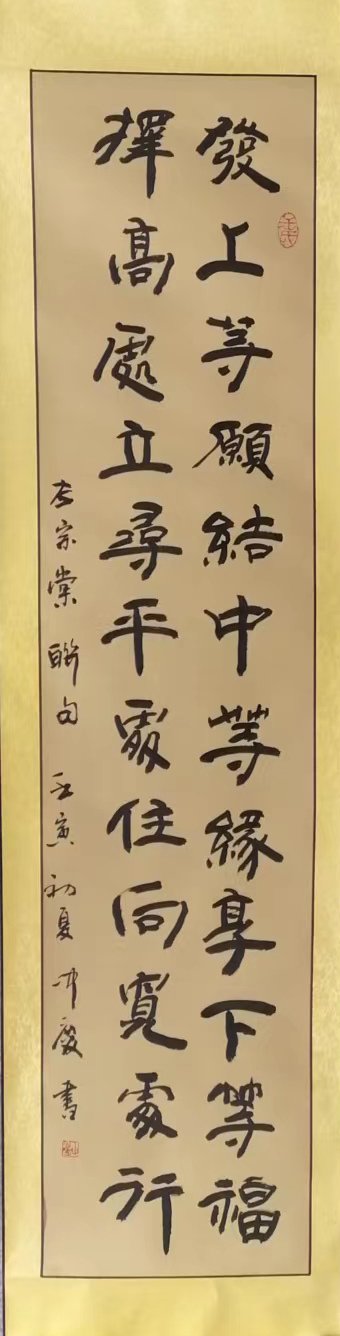 發上等願結中等緣享下等福
擇高處立尋平處住向寬處行
左宗棠聯句 壬寅初夏 中慶書